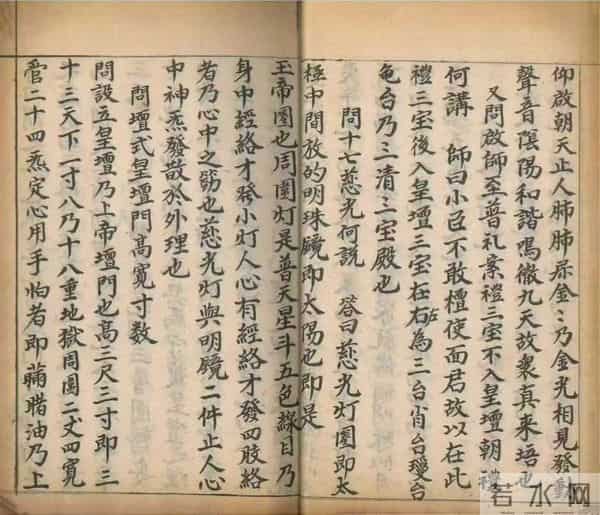 仰啟朝天止人肺肺屬金〻乃金光相見發動
聲音陰陽和諧鳴徹九天故衆真来也
又問啟師至普礼案禮三宝不入皇壇朝禮
何講 師曰小臣不敢檀使面君故以在此
禮三宝後入皇壇三宝在右左為三台肖台璎台
龟台乃三清三宝殿也
問十七慈光何説 答曰慈光灯圍即太
極中間放的明珠镜即太陽也即是
玉帝圏也周圍灯是普天星斗五色線目乃
身中經絡才發小灯人心有經絡才發四肢絡
者乃心中之筋也慈光灯與明鏡二件止人心
中神炁發散於外理也
問壇式皇壇門髙寬寸数
問設立皇壇乃上帝壇門也髙三尺三寸即三
十三天下一寸八乃十八重地獄周圍二丈四寬
管二十四炁定心用手怕者即腊油乃上
若水网